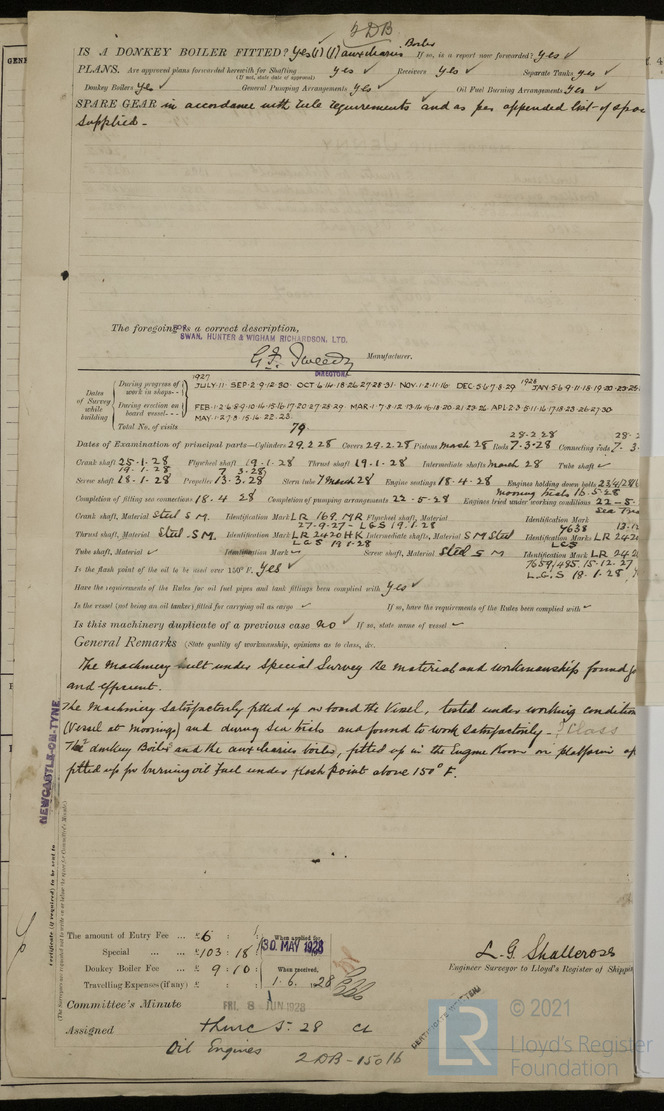 2DB
IS A DONKEY BOILER FITTED? Yes (1) (1) auxiliaries Boiler If so, is a report now forwarded? Yes ✓
PLANS. Are approved plans forwarded herewith for Shafting yes ✓ Receivers Yes ✓ Separate Tanks yes ✓
(If not, state date of approval)
Donkey Boilers Yes ✓ General Pumping Arrangements Yes ✓ Oil Fuel Burning Arrangements Yes ✓
SPARE GEAR in accordance with rule requirements and as per appended list of
supplied -
The foregoing is a correct description,
FOR SWAN, HUNTER & WIGHAM RICHARDSON, LTD.
G. F. Tweedy Manufacturer.
DIRECTOR
Dates of Survey while building
During progress of work in shops - - 1927 JULY·11· SEP·2·9·12·30· OCT·6·14·18·26·27·28·31· NOV·1·2·11·16· DEC·5·6·7·8·29 1928 JAN·5·6·9·11·18·19·20·23·25
During erection on board vessel - - - FEB·1·2·6·8·9·10·14·15·16·17·20·27·28·29· MAR·1·7·8·12·13·14·16·18·20·21·23·26· APL·2·3·5·11·16·17·18·23·26·27·30
MAY·1·2·7·8·15·16·22·23·
Total No. of visits 79
Dates of Examination of principal parts—Cylinders 29.2.28 Covers 29.2.28 Pistons March 28 Rods 28·2·28 7·3·28 Connecting rods 28·2 7·3
Crank shaft 25·1·28 19·1·28 Flywheel shaft 19·1·28 Thrust shaft 19·1·28 Intermediate shafts March 28 Tube shaft ✓
Screw shaft 18·1·28 Propeller 7·3·28 13·3·28 Stern tube 7 March 28 Engine seatings 18·4·28 Engines holding down bolts 23/4/28
Completion of fitting sea connections 18·4·28 Completion of pumping arrangements 22·5·28 Engines tried under working conditions mooring trials 16·5·28 22·5
Sea Tri
Crank shaft, Material Steel S M. Identification Mark LR 169 MR 27·9·27 - LGS 19·1·28 Flywheel shaft, Material Identification Mark
Thrust shaft, Material Steel S M. Identification Mark LR 2420 HK LGS 19·1·28 Intermediate shafts, Material S M Steel Identification Marks 7638 13·1 LR 242 LGS
Tube shaft, Material ✓ Identification Mark ✓ Screw shaft, Material Steel S M Identification Mark LR 242
7659, 485. 15·12·27
L.G.S 18·1·28
Is the flash point of the oil to be used over 150° F. Yes ✓
Have the requirements of the Rules for oil fuel pipes and tank fittings been complied with Yes ✓
Is the vessel (not being an oil tanker) fitted for carrying oil as cargo ✓ If so, have the requirements of the Rules been complied with ✓
Is this machinery duplicate of a previous case no ✓ If so, state name of vessel ✓
General Remarks (State quality of workmanship, opinions as to class, &c.
The Machinery built under Special Survey the material and workmanship found
and efficient.
The Machinery satisfactorily fitted up on board the Vessel, tested under working condition
(Vessel at moorings) and during Sea trials and found to work satisfactorily - ? Class
The donkey Boiler and the auxiliaries boiler, fitted up in the Engine Room on platform
fitted up for burning oil fuel under flash point above 150° F.
NEWCASTLE-ON-TYNE
Certificate (if required) to be sent to
(The Surveyors are requested not to write on or below the space for Committee's Minute)
The amount of Entry Fee ... £ 6 : :
Special ... ... £ 103 : 18 :
Donkey Boiler Fee ... £ 9 : 10 :
Travelling Expenses (if any) £ : :
When applied for,
30. MAY 1928
When received,
1. 6. 1928
L. G. Shallcross
Engineer Surveyor to Lloyd's Register of Shipping
Committee's Minute FRI. 8 JUN 1928
Assigned + LMC 5. 28 CL
Oil Engines 2 DB - 150 lb
CERTIFICATE WRITTEN
LR © 2021
Lloyd's Register
Foundation